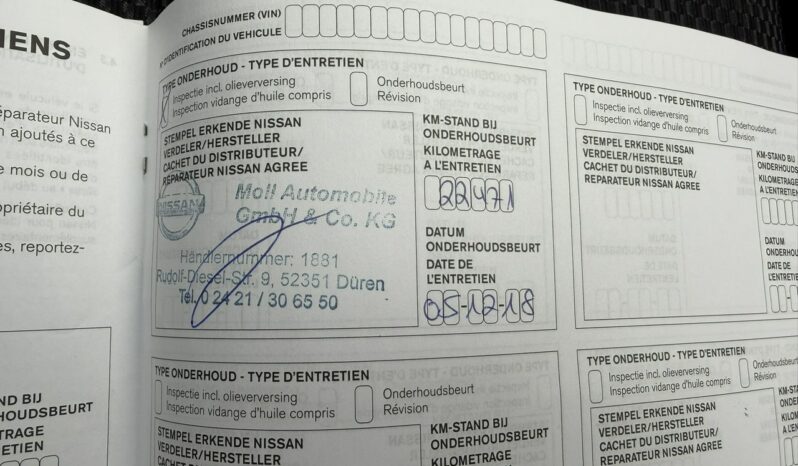 IENS
éparateur Nissan
n ajoutés à ce
e mois ou de
opriétaire du
es, reportez-
ND BIJ
RHOUDSBEURT
TRAGE
ETIEN
CHASSISNUMMER (VIN)
D'IDENTIFICATION DU VEHICULE
TYPE ONDERHOUD - TYPE D'ENTRETIEN
Inspectie incl. olieverversing
Inspection vidange d'huile compris
Onderhoudsbeurt
Révision
STEMPEL ERKENDE NISSAN
VERDELER/HERSTELLER
CACHET DU DISTRIBUTEUR/
REPARATEUR NISSAN AGREE
NISSAN
Moll Automobile
GmbH & Co. KG
Händlernummer: 1881
Rudolf-Diesel-Str. 9, 52351 Düren
Tel. 0 24 21 / 30 65 50
KM-STAND BIJ
ONDERHOUDSBEURT
KILOMETRAGE
A L'ENTRETIEN
22471
DATUM
ONDERHOUDSBEURT
DATE DE
L'ENTRETIEN
05-12-18
TYPE ONDERHOUD - TYPE D'ENTRETIEN
Inspectie incl. olieverversing
Inspection vidange d'huile compris
Onderhoudsbeurt
Révision
STEMPEL ERKENDE NISSAN
VERDELER/HERSTELLER
CACHET DU DISTRIBUTEUR/
REPARATEUR NISSAN AGREE
KM-STAND BIJ
ONDERHOUDSB
KILOMETRAGE
A L'ENTRETIEN
DATUM
ONDERHOUDS
DATE DE
L'ENTRETIEN
TYPE ONDERHOUD - TYPE D'ENTRETIEN
Inspectie incl. olieverversing
Inspection vidange d'huile compris
Onderhoudsbeurt
Révision
STEMPEL ERKENDE NISSAN
VERDELER/HERSTELLER
CACHET DU DISTRIBUTEUR/
KM-STAND BIJ
ONDERHOUDSBEURT
KILOMETRAGE
TYPE ONDERHOUD - TYPE D'ENTRETIEN
Inspectie incl. olieverversing
Inspection vidange d'huile compris
Onderhoudsbeurt
Révision
STEMPEL ERKENDE NISSAN
VERDELER/HERSTELLER
CACHET DU DISTRIBUTEUR/
REPARATEUR NISSAN AGREE
KM-STA
ONDER
KILOM
A L'EN